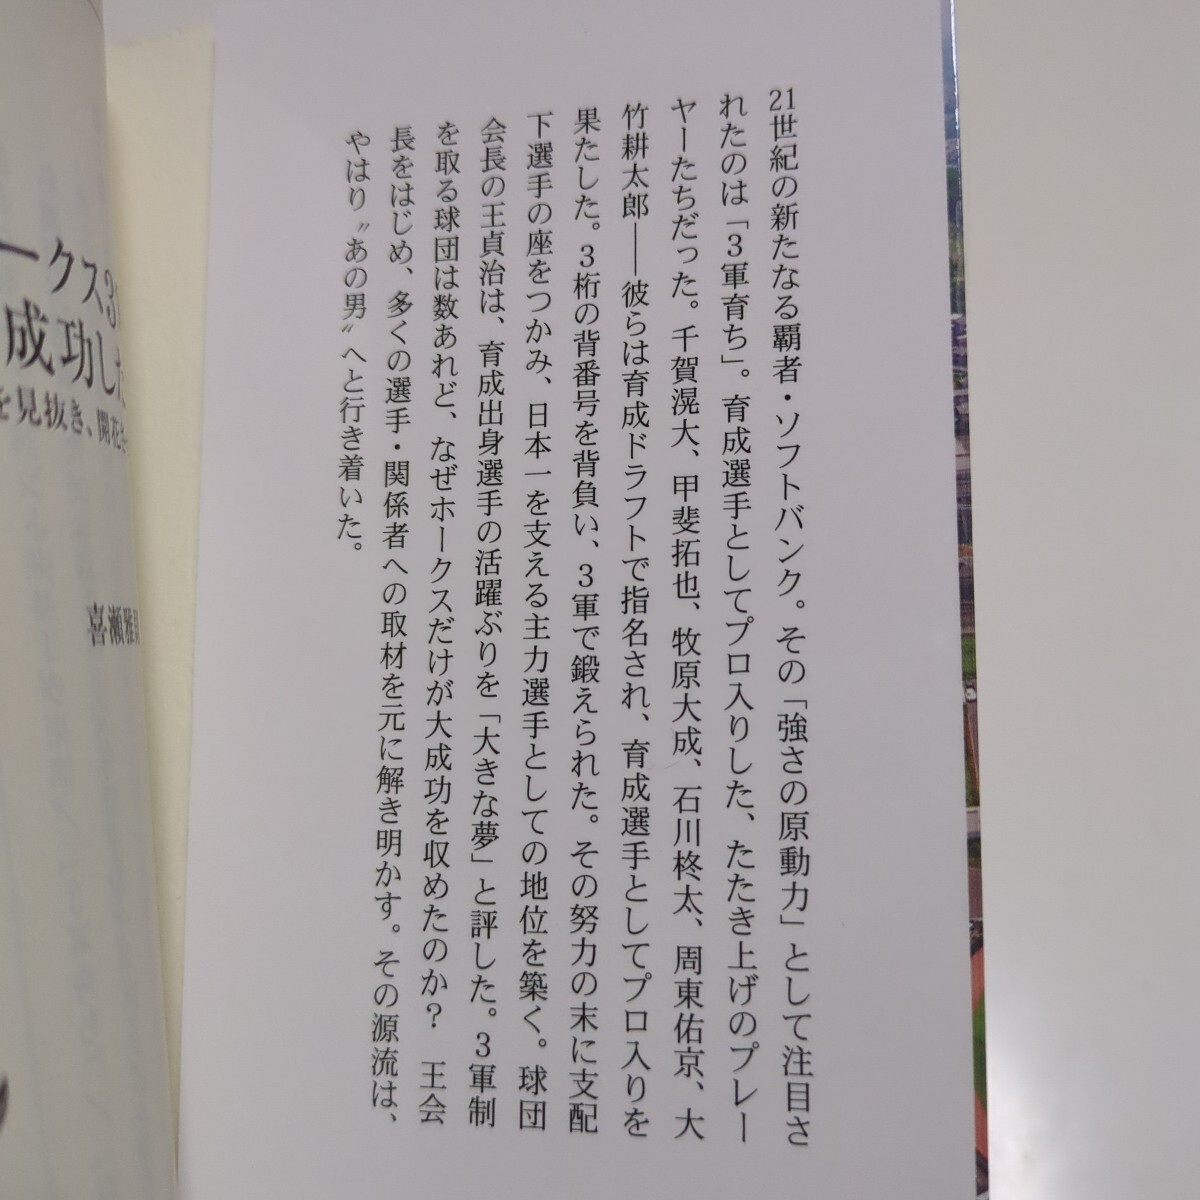 21世紀の新たなる覇者・ソフトバンク。その「強さの原動力」として注目さ
れたのは「3軍育ち」。育成選手としてプロ入りした、たたき上げのプレー
ヤーたちだった。千賀滉大、甲斐拓也、牧原大成、石川柊太、周東佑京、大
竹耕太郎――彼らは育成ドラフトで指名され、育成選手としてプロ入りを
果たした。3桁の背番号を背負い、3軍で鍛えられた。その努力の末に支配
下選手の座をつかみ、日本一を支える主力選手としての地位を築く。球団
会長の王貞治は、育成出身選手の活躍ぶりを「大きな夢」と評した。3軍制
を取る球団は数あれど、なぜホークスだけが大成功を収めたのか? 王会
長をはじめ、多くの選手・関係者への取材を元に解き明かす。その源流は、
やはり〝あの男〟へと行き着いた。
ークス3
成功した
を見抜き、開花
喜瀬雅